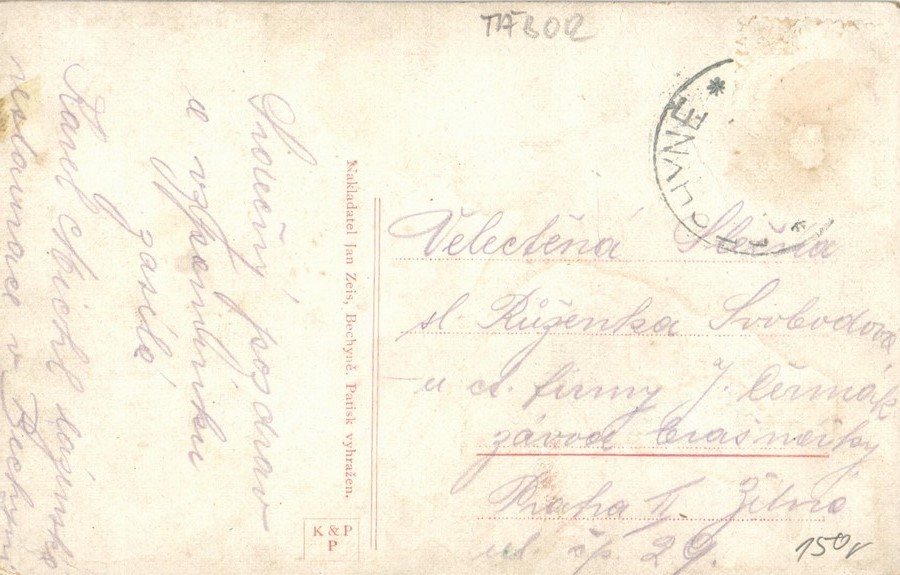 TÁBOR
Srdečný pozdrav
a vzpomínku
zasílá
Karel
restaurace v Bechyni
Nakladatel Jan Zeis, Bechyně. Patisk vyhražen.
K & P
P
Velectěná Slečna
sl. Růženka Svobodova
u ct. firmy J. Čermák
závod
Praha II. Žitná
ul. čp. 29.
150r